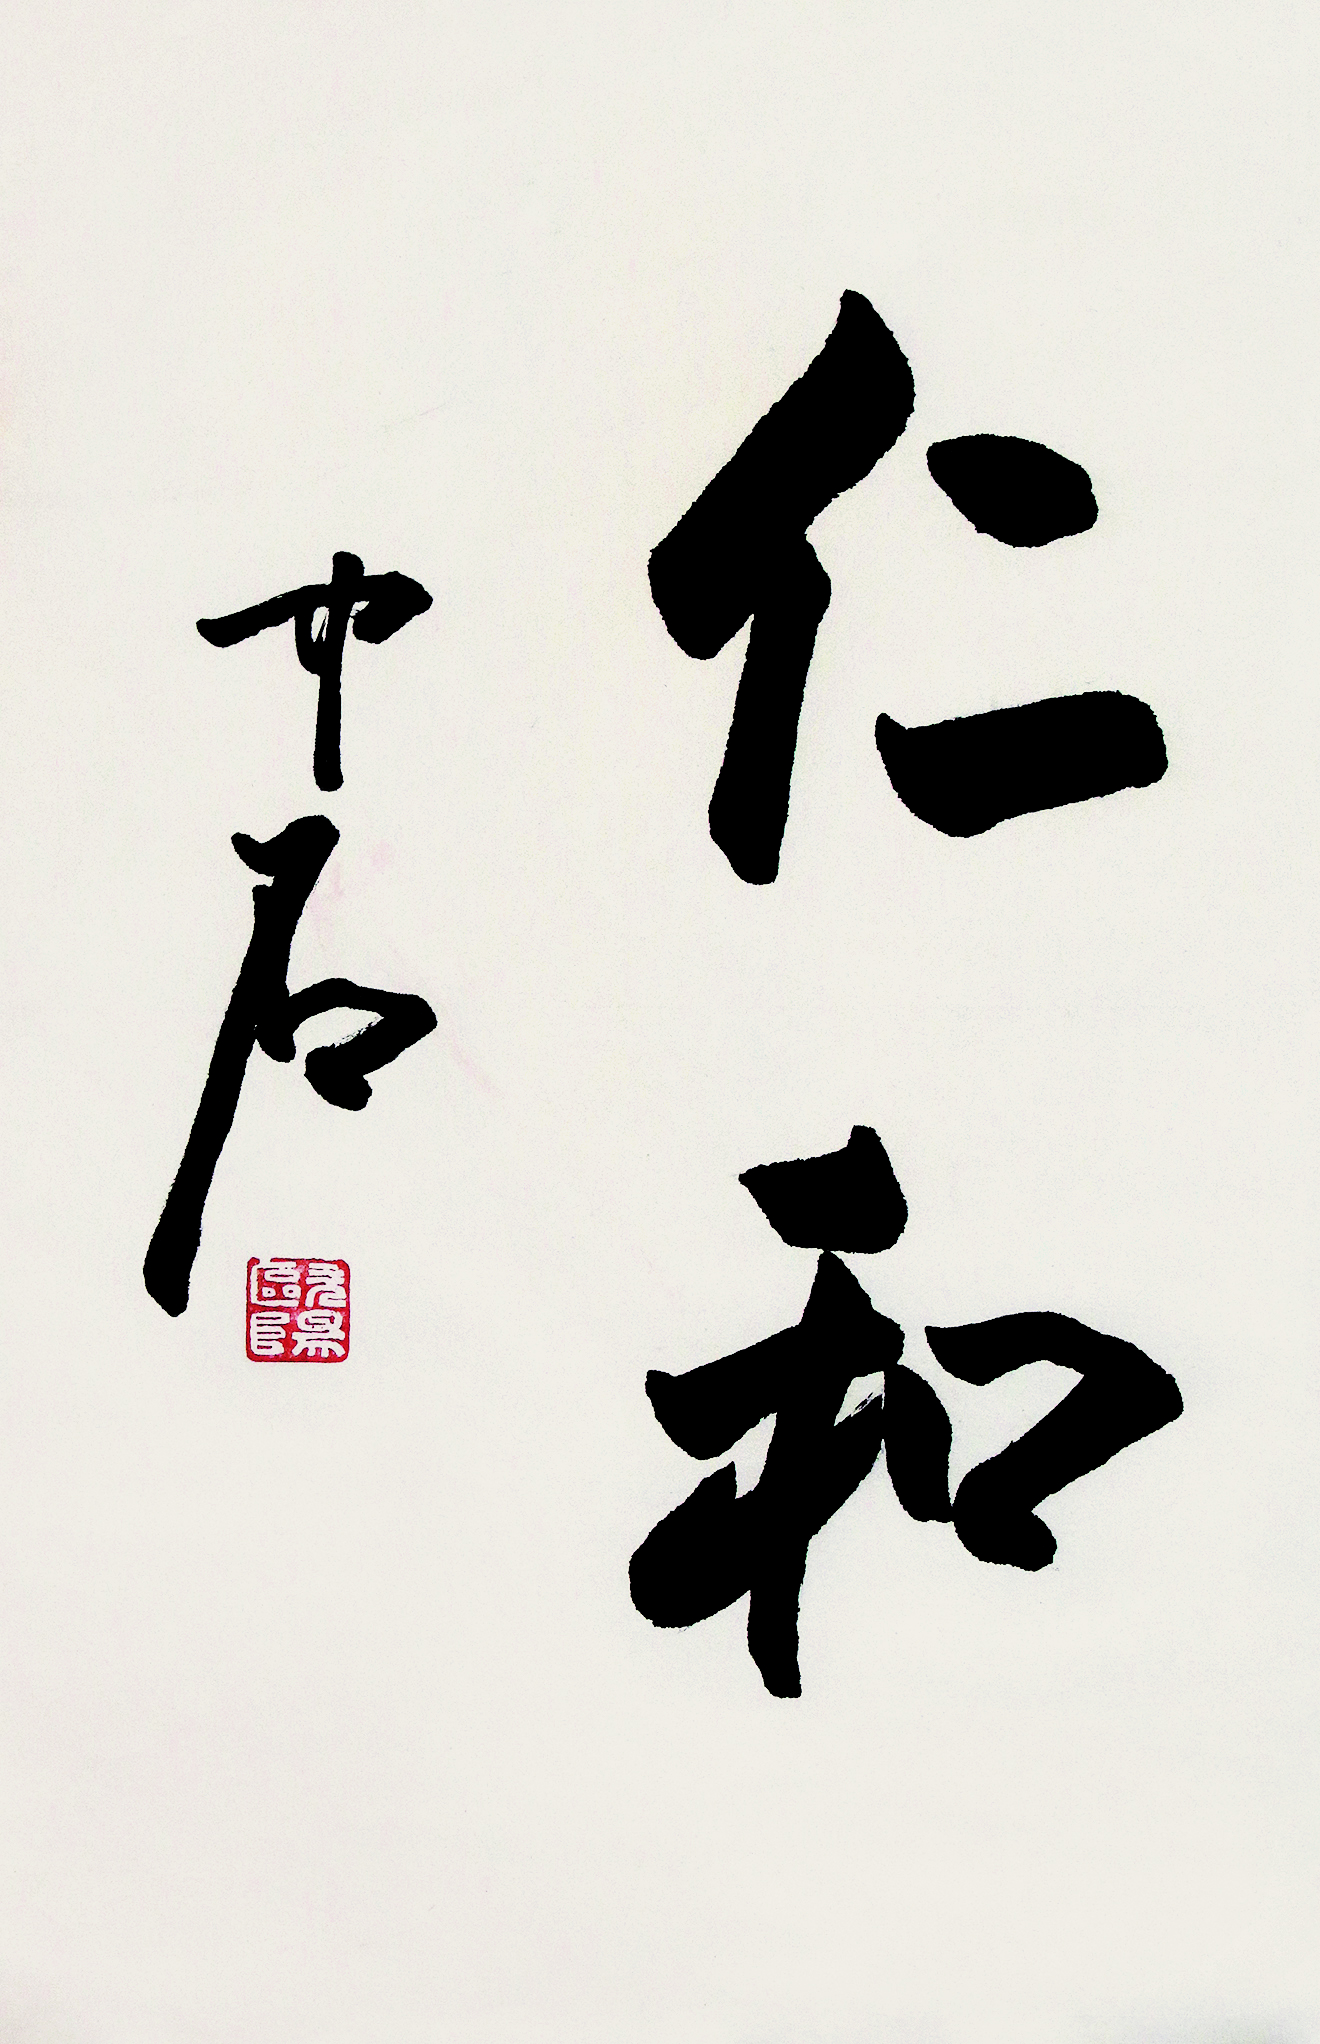 仁和
中石